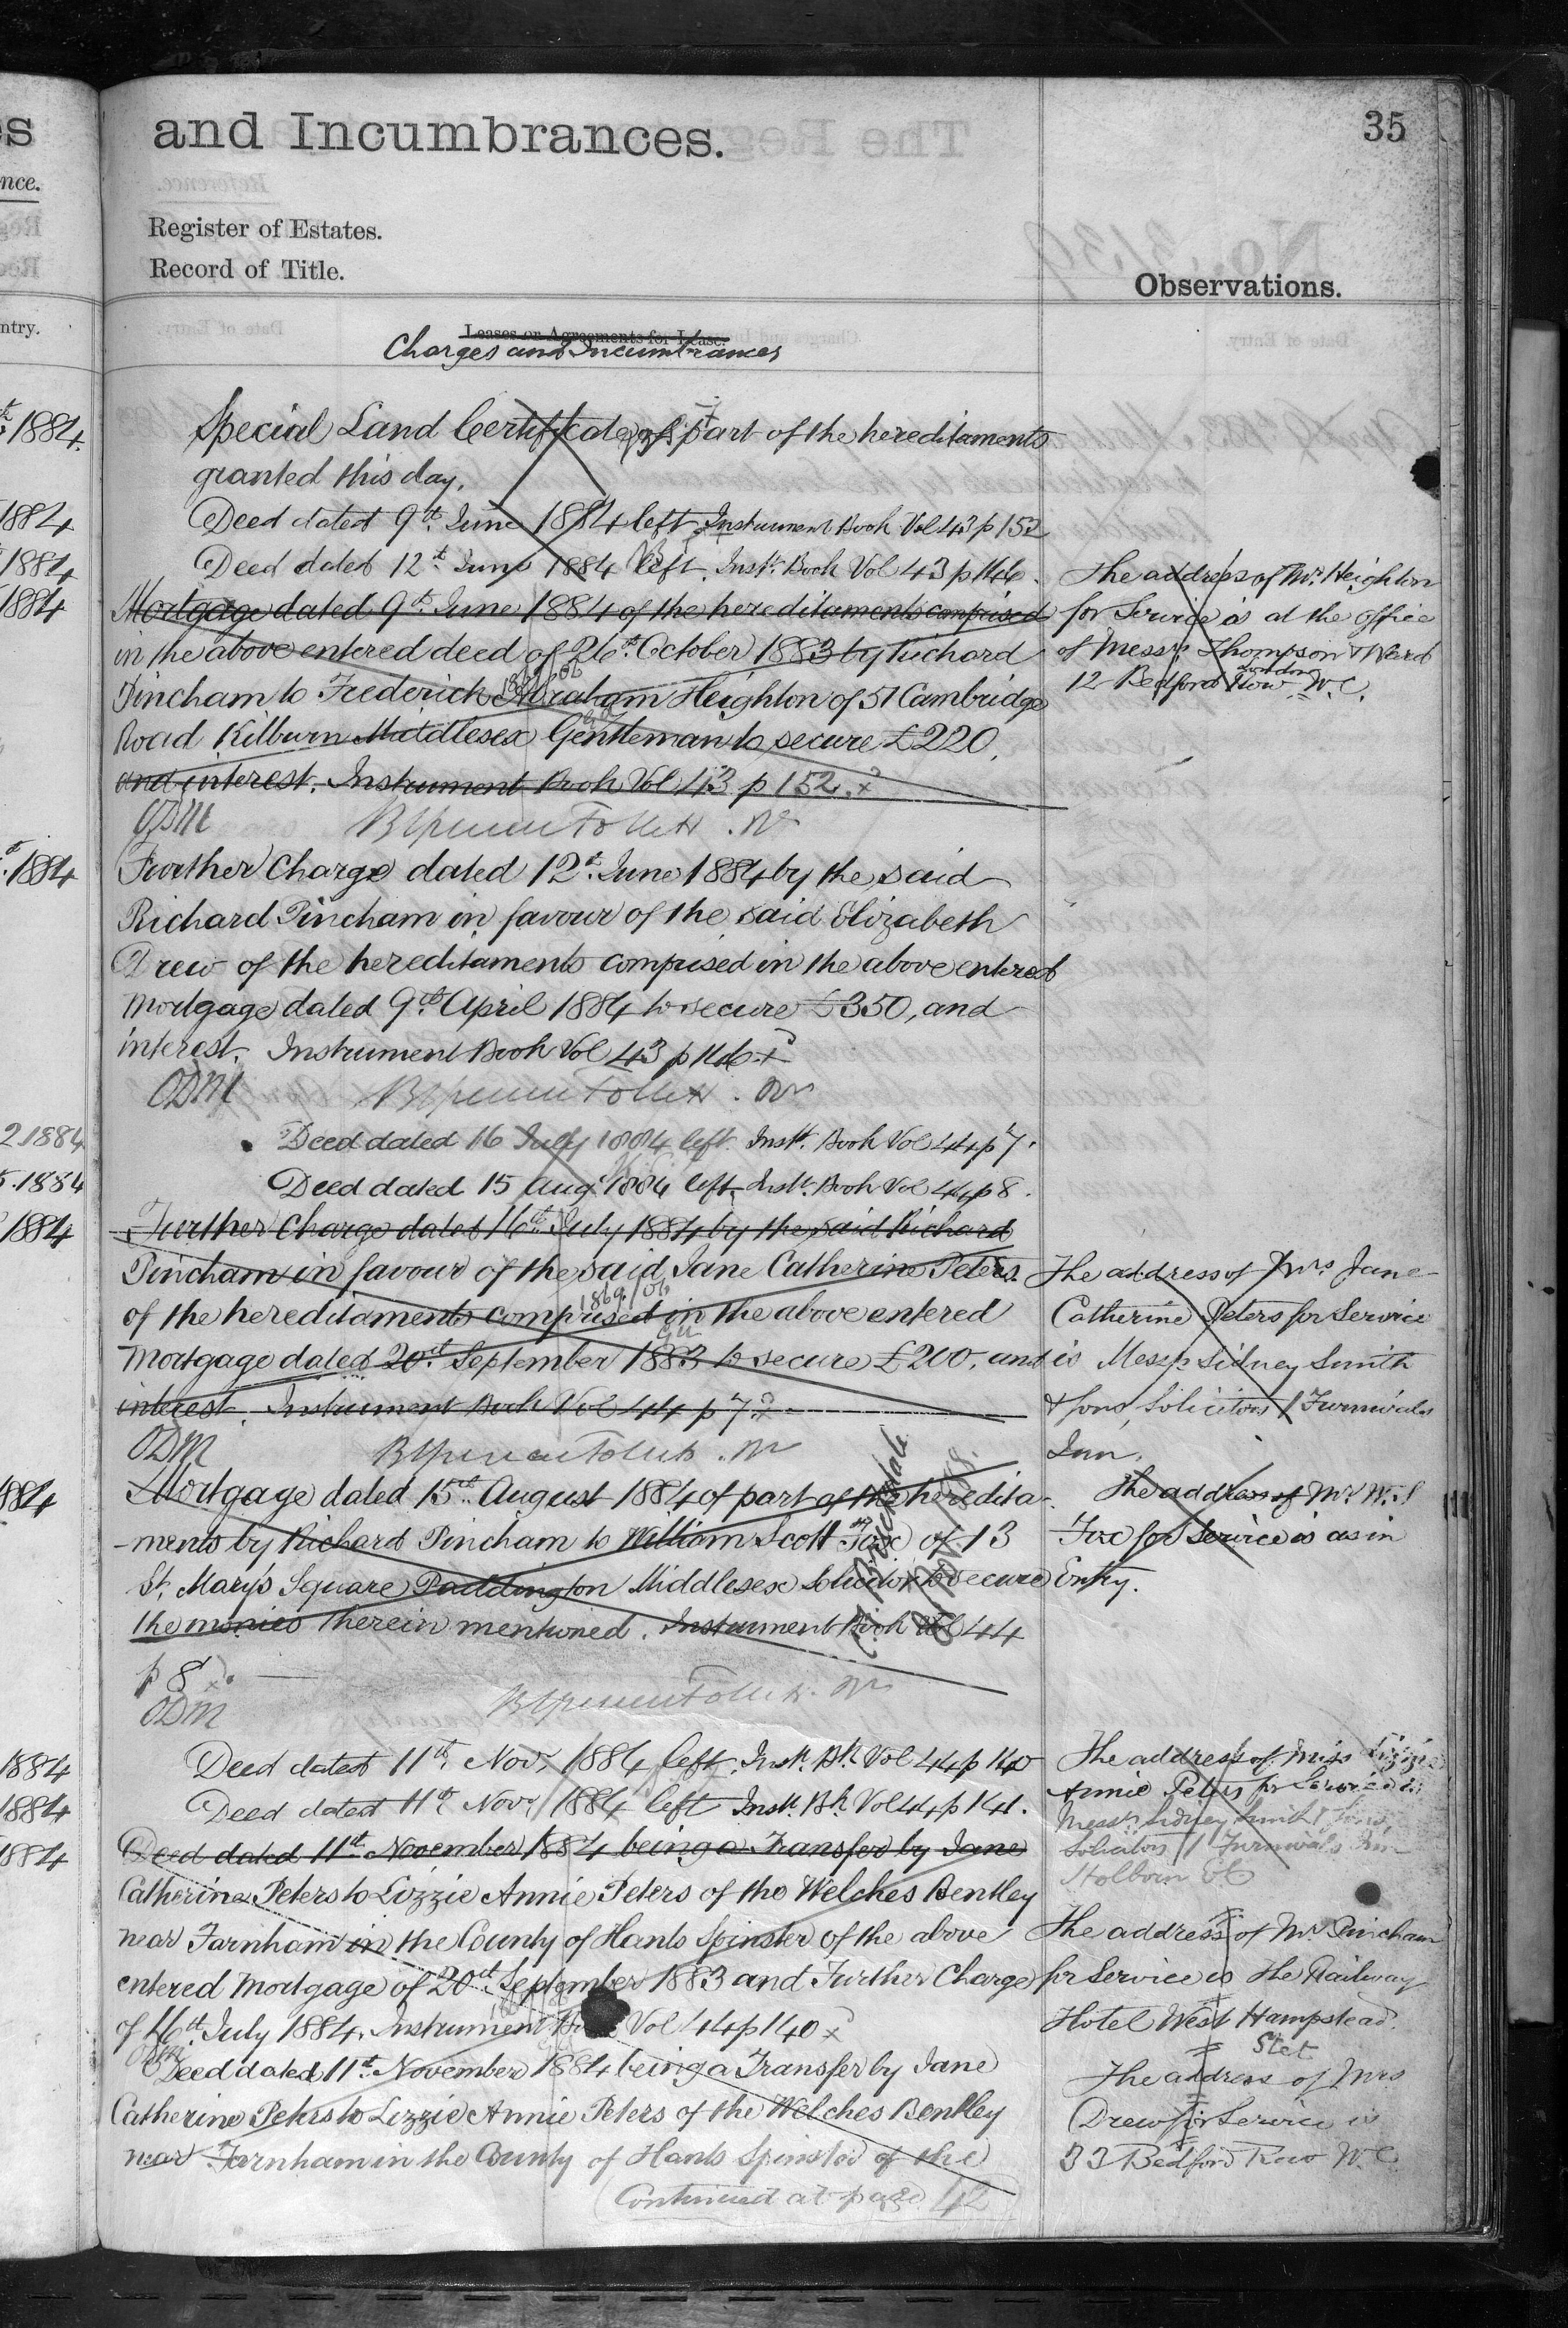 es
and Incumbrances.
35
nce.
Register of Estates.
Record of Title.
Observations.
ntry.
Leases or Agreements for Lease.
Charges and Incumbrances
1884. Special Land Certificate of part of the hereditaments
granted this day.
1884 Deed dated 9th. June 1884 left Instrument Book Vol 43 p 152
1884 Deed dated 12th. June 1884 left. Inst. Book Vol 43 p 146.
1884 Mortgage dated 9th. June 1884 of the hereditaments comprised
in the above entered deed of 26th. October 1883 by Richard
Pincham to Frederick Abraham Heighton of 51 Cambridge
Road Kilburn Middlesex Gentleman to secure £220,
and interest. Instrument Book Vol 43 p 152.
ODM
The address of Mr. Heighton
for Service is at the office
of Messrs. Thompson & Ward
12 Bedford Row London W.C.
1884 Further Charge dated 12th. June 1884 by the said
Richard Pincham in favour of the said Elizabeth
Drew of the hereditaments comprised in the above entered
Mortgage dated 9th. April 1884 to secure £350, and
interest. Instrument Book Vol 43 p 146
ODM
2.1884 Deed dated 16 July 1884 left. Inst. Book Vol 44 p 7.
1884 Deed dated 15 Aug. 1884 left. Inst. Book Vol 44 p 8.
1884 Further Charge dated 16th. July 1884 by the said Richard
Pincham in favour of the said Jane Catherine Peters
of the hereditaments comprised in the above entered
Mortgage dated 20th. September 1883 to secure £200, and
interest. Instrument Book Vol 44 p 7
ODM
The address of Mrs Jane
Catherine Peters for Service
is Messrs Sidney Smith
& Sons, Solicitors 1 Furnivals
Inn.
1884 Mortgage dated 15th. August 1884 of part of the heredita-
-ments by Richard Pincham to William Scott Fox of 13
St. Mary's Square Paddington Middlesex Solicitor to secure
the monies therein mentioned. Instrument Book Vol 44
p 8
ODM
The address of Mr W. S
Fox for Service is as in
Entry.
1884 Deed dated 11th. Nov. 1884 left. Inst. Bk. Vol 44 p 140
1884 Deed dated 11th Nov. 1884 left Inst. Bk. Vol 44 p 141.
1884 Deed dated 11th. November 1884 being a Transfer by Jane
Catherine Peters to Lizzie Annie Peters of the Welches Bentley
near Farnham in the County of Hants Spinster of the above
entered Mortgage of 20th September 1883 and Further Charge
of 16th July 1884. Instrument Book Vol 44 p 140
ODM
Deed dated 11th. November 1884 being a Transfer by Jane
Catherine Peters to Lizzie Annie Peters of the Welches Bentley
near Farnham in the County of Hants Spinster of the
Continued at page 42
The address of Miss Lizzie
Annie Peters for Service is
Messrs. Sidney Smith & Sons,
Solicitors 1 Furnivals Inn
Holborn EC
The address of Mr Pincham
for Service is The Railway
Hotel West Hampstead.
Stet
The address of Mrs
Drew for Service is
33 Bedford Row W.C.